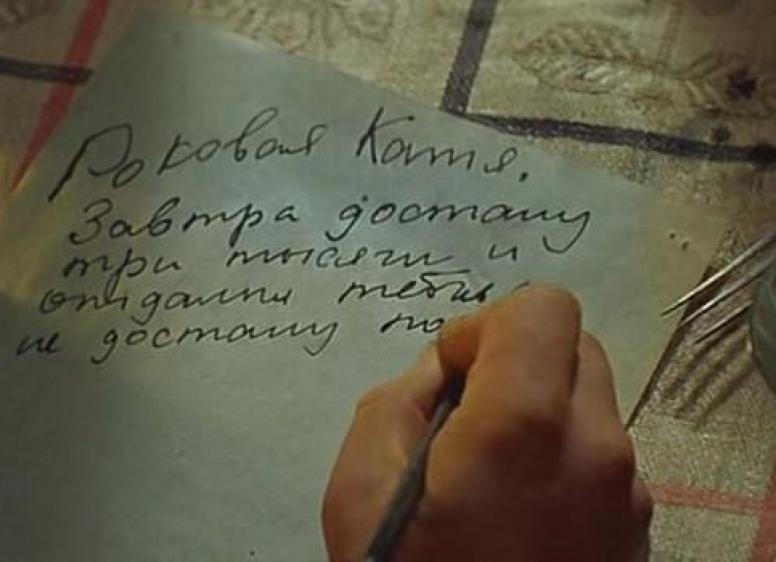 Роковая Катя.
Завтра достану
три тысячи и
отдам тебе
не достану по